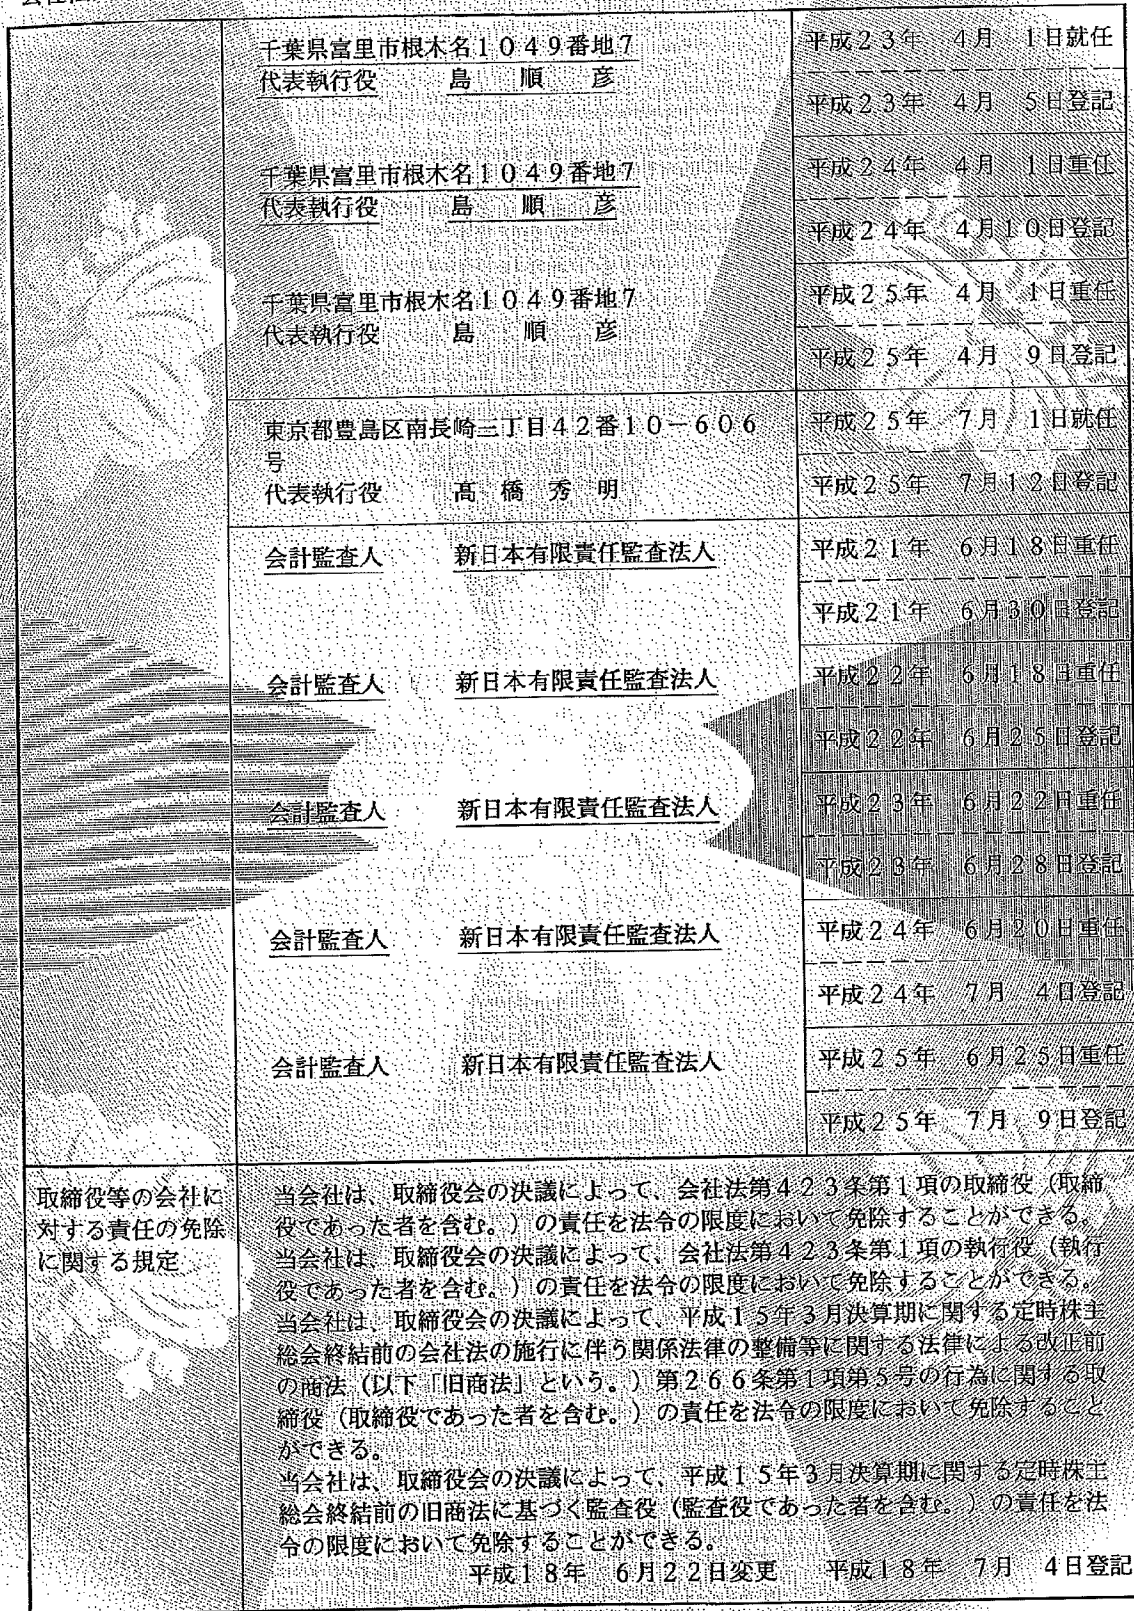 千葉県富里市根木名1049番地7
代表執行役 島 順 彦
平成23年 4月 1日就任
平成23年 4月 5日登記
千葉県富里市根木名1049番地7
代表執行役 島 順 彦
平成24年 4月 1日重任
平成24年 4月10日登記
千葉県富里市根木名1049番地7
代表執行役 島 順 彦
平成25年 4月 1日重任
平成25年 4月 9日登記
東京都豊島区南長崎三丁目42番10-606
号
代表執行役 髙 橋 秀 明
平成25年 7月 1日就任
平成25年 7月12日登記
会計監査人 新日本有限責任監査法人
平成21年 6月18日重任
平成21年 6月30日登記
会計監査人 新日本有限責任監査法人
平成22年 6月18日重任
平成22年 6月25日登記
会計監査人 新日本有限責任監査法人
平成23年 6月22日重任
平成23年 6月28日登記
会計監査人 新日本有限責任監査法人
平成24年 6月20日重任
平成24年 7月 4日登記
会計監査人 新日本有限責任監査法人
平成25年 6月25日重任
平成25年 7月 9日登記
取締役等の会社に
対する責任の免除
に関する規定
当会社は、取締役会の決議によって、会社法第423条第1項の取締役(取締
役であった者を含む。)の責任を法令の限度において免除することができる。
当会社は、取締役会の決議によって、会社法第423条第1項の執行役(執行
役であった者を含む。)の責任を法令の限度において免除することができる。
当会社は、取締役会の決議によって、平成15年3月決算期に関する定時株主
総会終結前の会社法の施行に伴う関係法律の整備等に関する法律による改正前
の商法(以下「旧商法」という。)第266条第1項第5号の行為に関する取
締役(取締役であった者を含む。)の責任を法令の限度において免除すること
ができる。
当会社は、取締役会の決議によって、平成15年3月決算期に関する定時株主
総会終結前の旧商法に基づく監査役(監査役であった者を含む。)の責任を法
令の限度において免除することができる。
平成18年 6月22日変更 平成18年 7月 4日登記